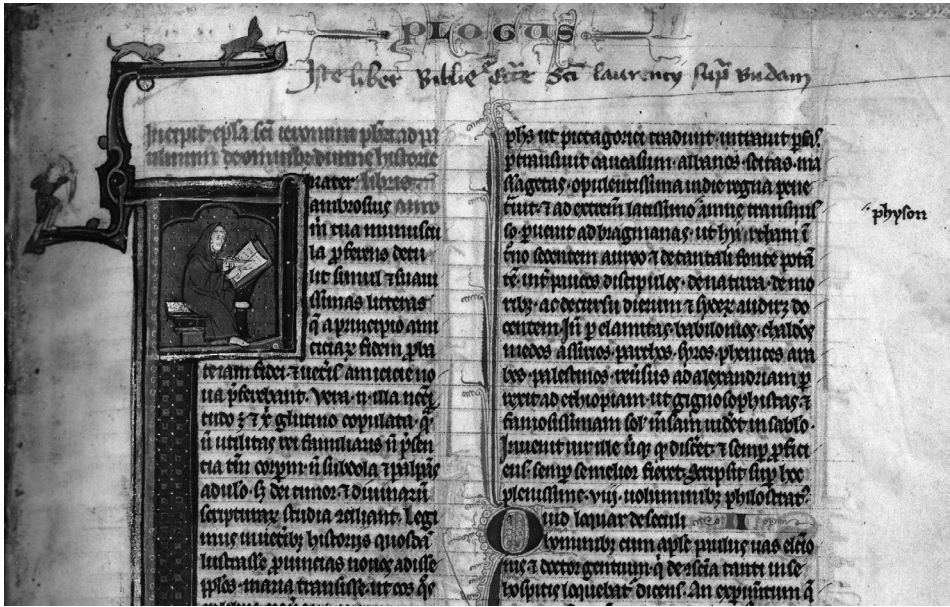 PLOGUS
Iste liber Biblie Eccͤ Sc̄i laurencÿ sup̄ Budam
Incipit ep̄la sc̄i ieronimi pb̄ri ad pau
linum de omnibꝫ diuine historie
rater libris
ambrosius
m̄ tua munuscu
la ꝑferens detu
lit simul ⁊ suaui
ssimas litteras
q̄ a principio ami
ciciaꝝ fidem ꝓba
te iam fidei ⁊ uet̄is amicicie no
ua p̄ferebant. Vera .n. illa nec̄i
tudo ⁊ xp̄i glutino copulata. q̄m
n̄ utilitas rei familiaris n̄ p̄sen
cia tm̄ corpm̄ n̄ subdola ⁊ palpās
adulo. sꝫ dei timor. ⁊ diuinarū
scripturaꝝ studia ↄciliant. Legi
mus in uet̄ibꝫ historijs quosdā
lustrasse ꝓuincias nouos adisse
pp̄los. maria transisse. ut eos q̄s
ph̄s ut pictagorici tradunt. intrauit ꝑsas.
ꝑtransiuit caucasum. albanos. scitas. ma
ssagetas. opulentissima indie regna pene
t̄uit. ⁊ ad extremū latissimo amne transmis
so ꝑuenit ad bragmanas. ut hyarcham ī
t̄no sedentem aureo ⁊ de tantali fonte potā
tē. int̄ paucos discipulos. de natura. de mo
ribꝫ. ac de cursu dierum ⁊ audiret do
centem. In̄ ꝑ elamitas. babilonios. chaldeos
medos. assirios. parthos. syros. phenices. ara
bes. palestinos. reūsus ad alexandriam. ꝑ
rexit ad ethiopiam. ut gignosophistas. ⁊
famosissimam sol̄ mēsam uidēt in sablo.
Inuenit iur ille uir ubiqꝫ q̄ disc̄et. ⁊ semꝑ ꝓfici
ens. semꝑ se melior fieret. Scripsit suꝑ hoc
plenissime. viij. uoluminibꝫ philostratꝰ.
Quid loquar de seculi I
hominibꝫ cum apl̄s paulus uas elc̄io
nis ⁊ doctor gentium. q̄ de ↄsc̄ia tanti in se
hospitis loquebat̄ dicens. An expim̄tum q̄
physon